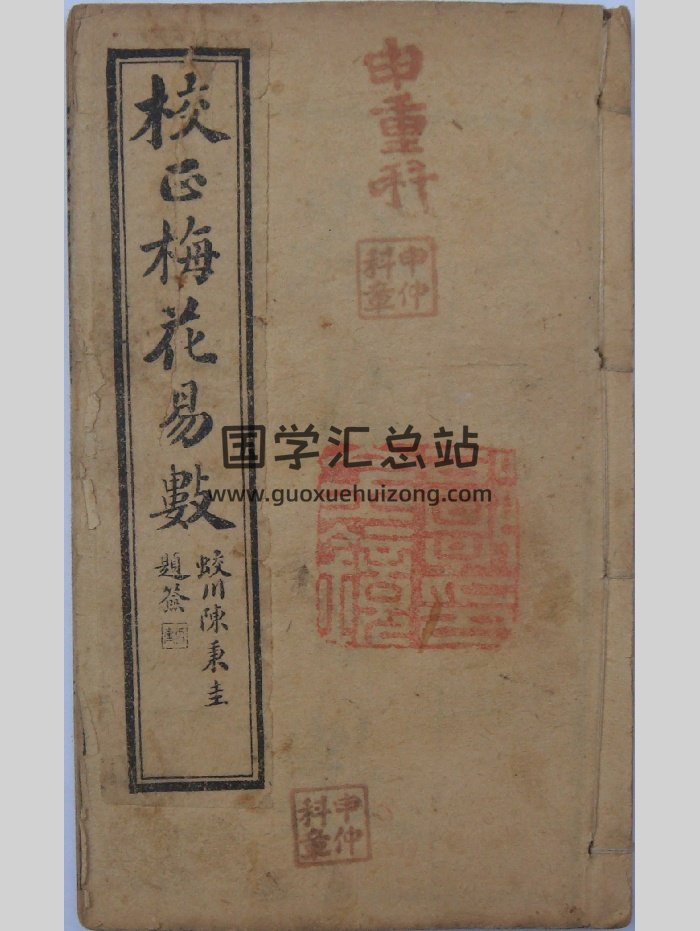 校正梅花易數
蛟川陳秉圭
題簽
申重科
申仲
科章
国学汇总站
www.guoxuehuizong.com
申仲
科章